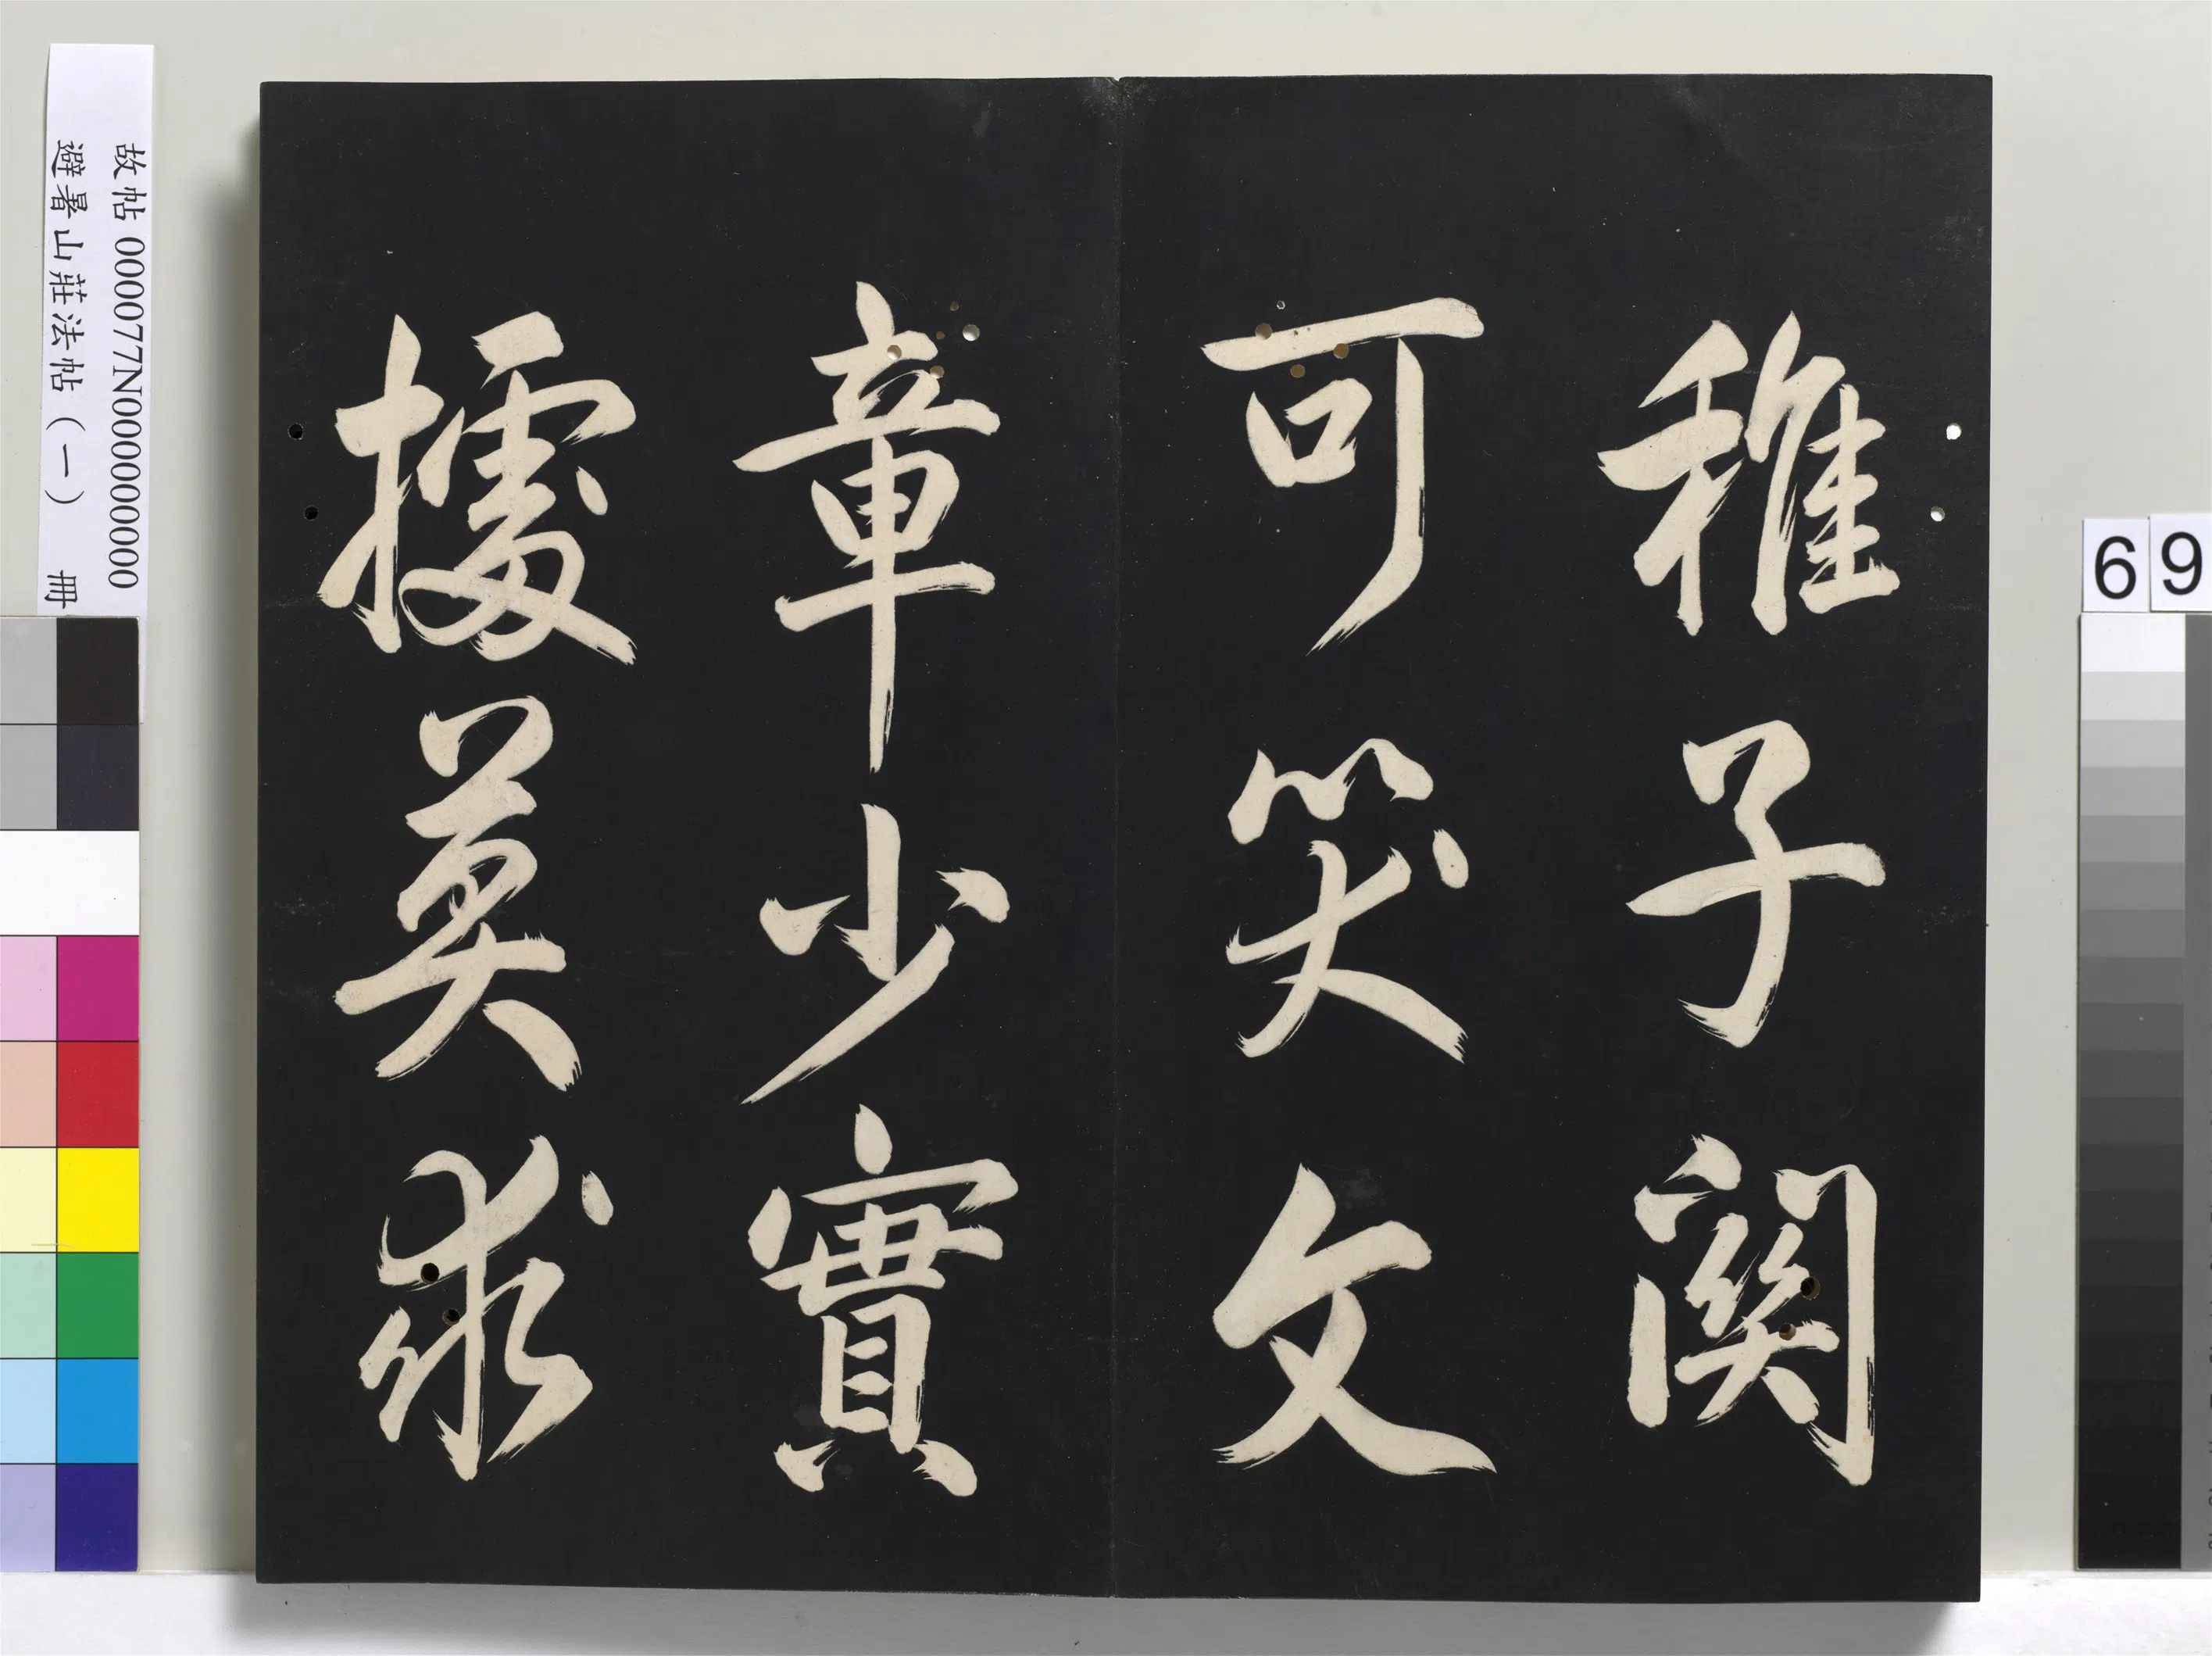 稚子関
可笑文
章少實
據莫求
故帖 000077N000000000
避暑山莊法帖(一) 冊
69